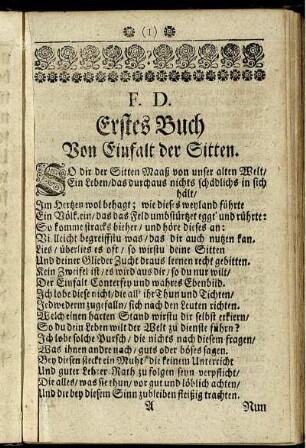 (1)
F. D.
Erstes Buch
Von Einfalt der Sitten.
SO dir der Sitten Maaß von unser alten Welt/
Ein Leben/das durchaus nichts schädlichs in sich
hält/
Im Hertzen wol behagt; wie diß weyland führte
Ein Völk ein/das das Feld umbstürtzet eggt' und rührte:
So komm stracks hieher/ und höre dieses an:
Vileicht begreiffstu was/ das dir auch nutzen kan.
Lies/ überlies es oft/ so wirstu deine Sitten
Und deiner Glieder Zucht draus lernen recht gebitten.
Kein Zweifel ist/ es wird aus dir/ so du nur wilt/
Der Einfalt Conterfey und wahres Ebenbild.
Ich lobe diese nicht/ die all' ihr Thun und Tichten/
Jedwederm zugefalln/ sich nach den Leuten richten.
Welch einen harten Stand wirstu dir selbst erkiern/
So du dein Leben wilt der Welt zu dienste führn?
Ich lobe solche Pursch/ die nichts nach diesem fragen/
Was ihnen andre nach/ guts oder böses sagen.
Bey diesen steckt ein Muht/ die keinem Unterricht
Und guter Lehrer Rath zu folgen seyn verpflicht/
Die alles/ was sie thun/ vor gut und löblich achten/
Und die bey diesem Sinn zubleiben fleißig trachten.
A Nun